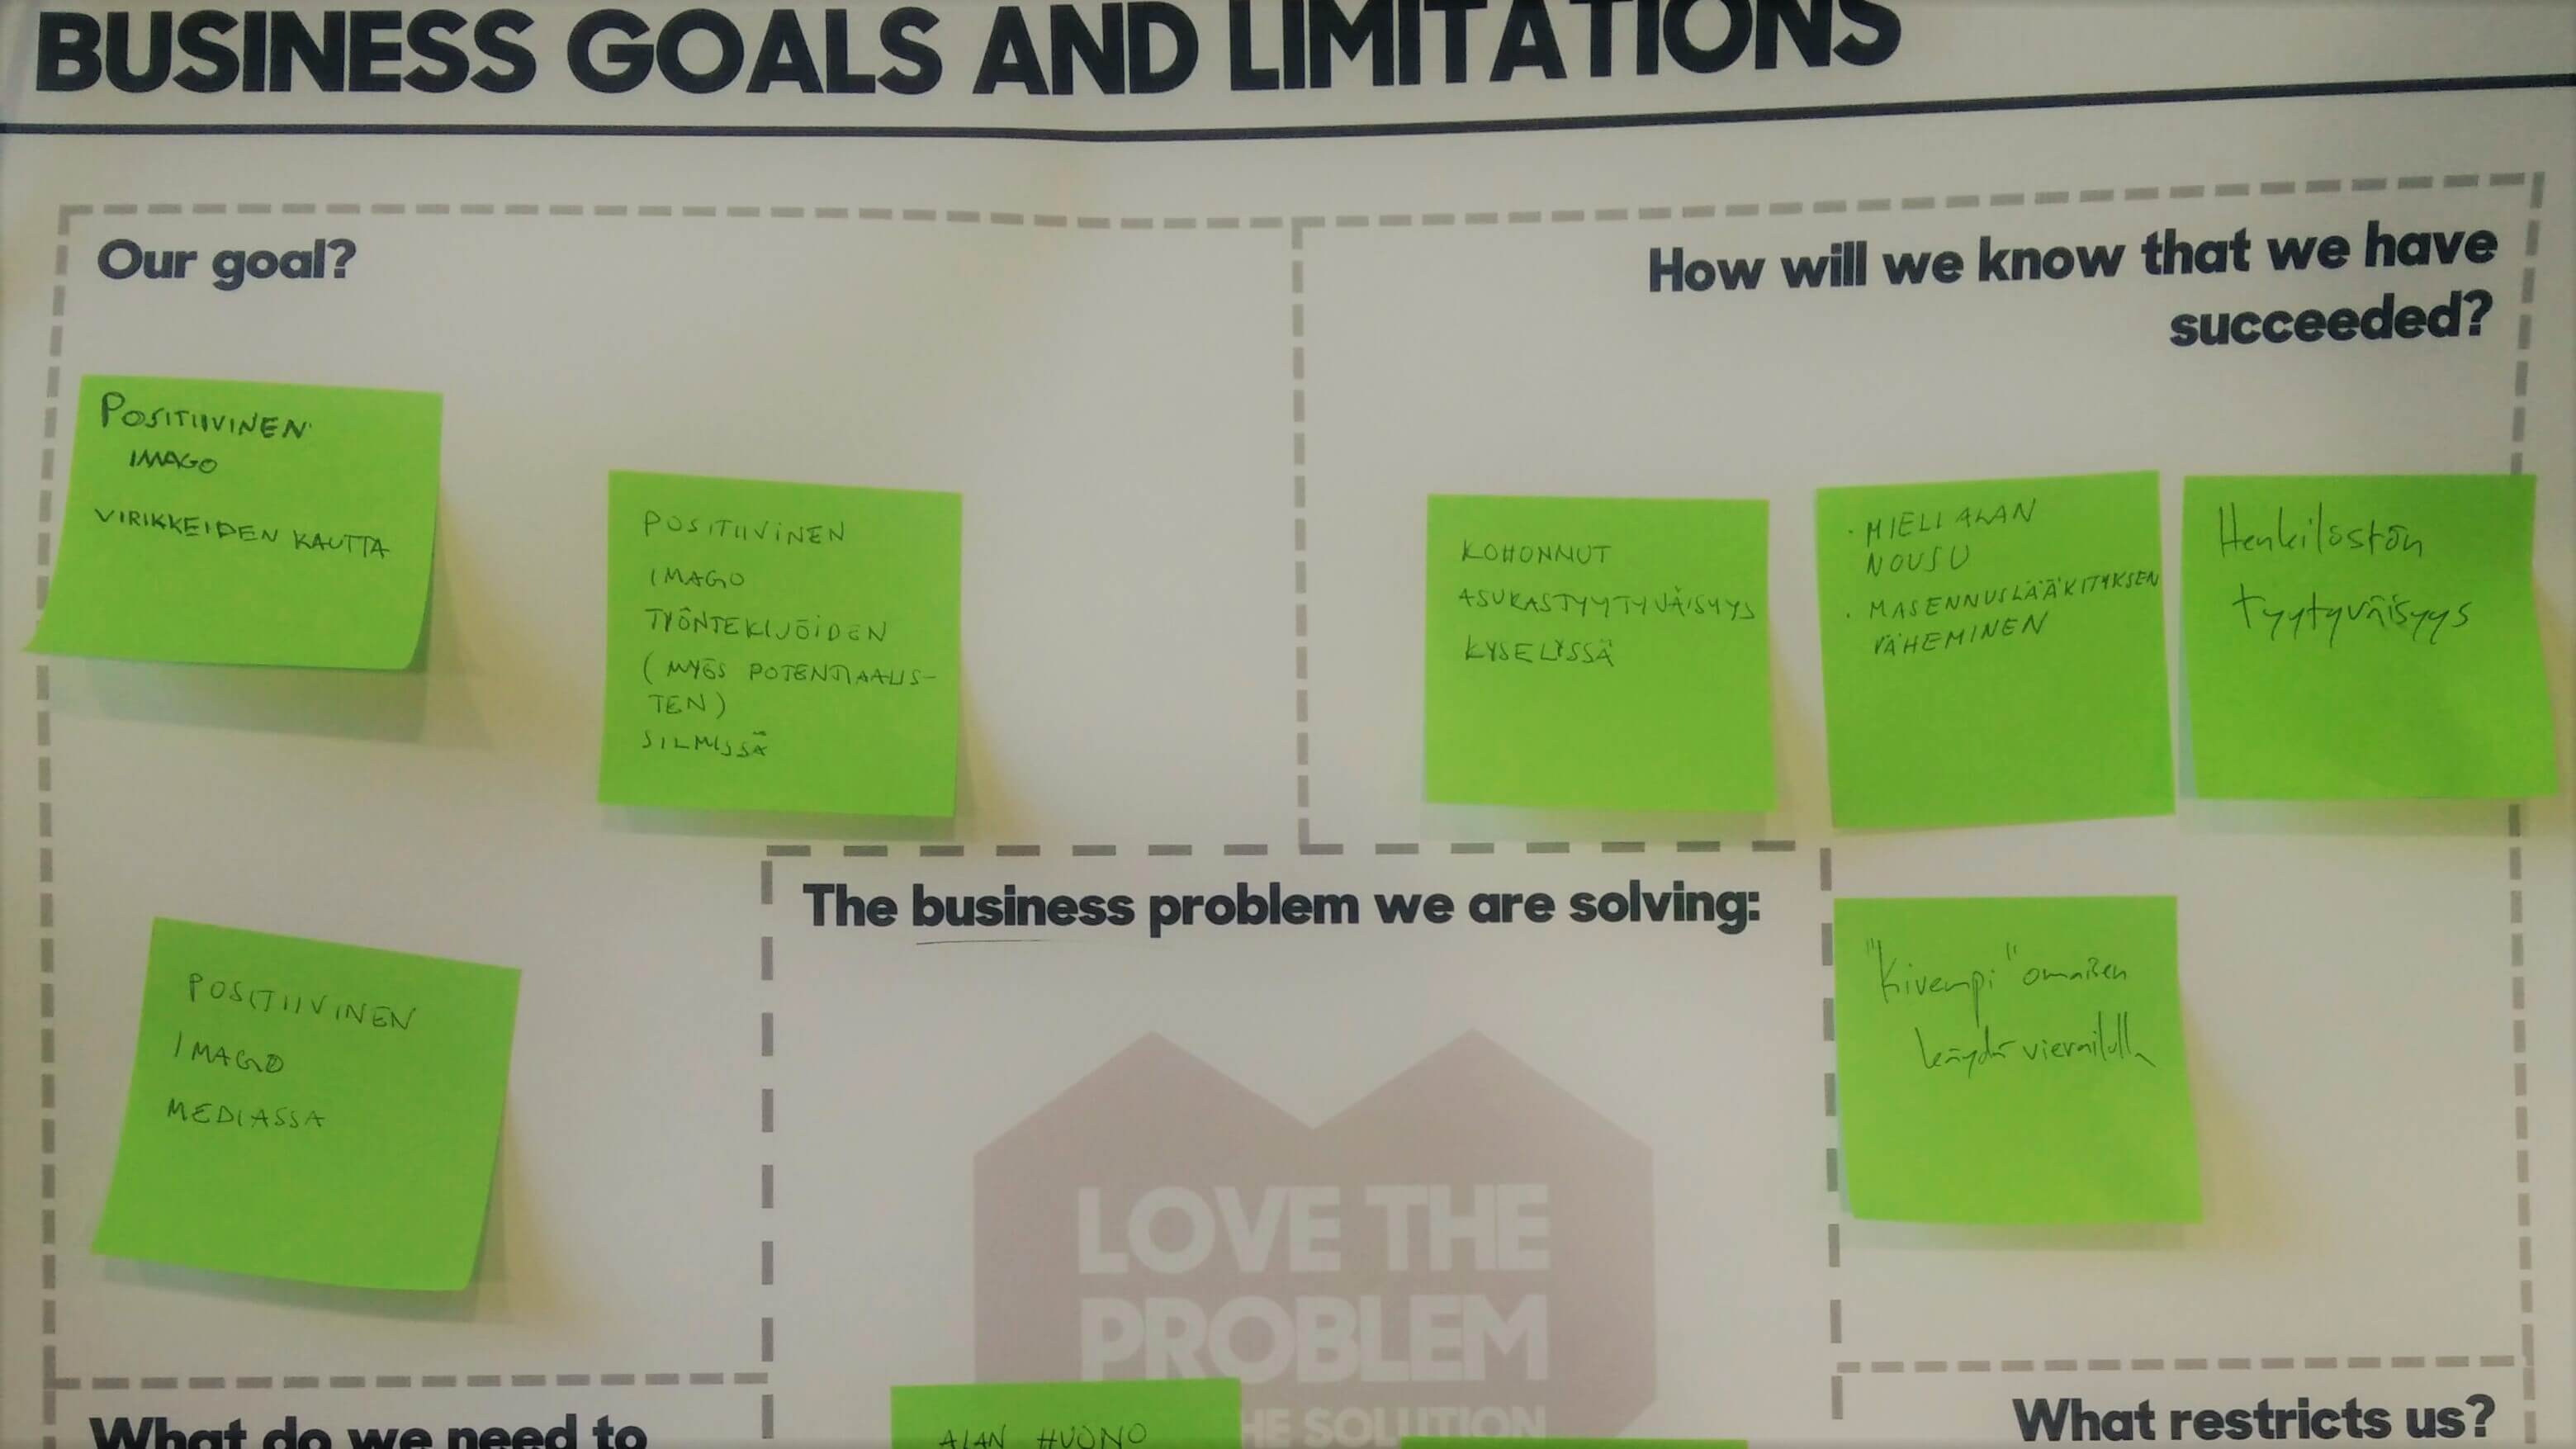 BUSINESS GOALS AND LIMITATIONS
Our goal?
POSITIIVINEN
IMAGO
VIRIKKEIDEN KAUTTA
POSITIIVINEN
IMAGO
TYÖNTEKIJÖIDEN
(MYÖS POTENTIAALIS-
TEN)
SILMISSÄ
POSITIIVINEN
IMAGO
MEDIASSA
How will we know that we have
succeeded?
KOHONNUT
ASUKASTYYTYVÄISYYS
KYSELYSSÄ
· MIELIALAN
NOUSU
· MASENNUSLÄÄKITYKSEN
VÄHEMINEN
Henkilöstön
tyytyväisyys
"Kivempi" omaisen
käydä vierailulla
The business problem we are solving:
LOVE THE
PROBLEM
HE SOLUTION
ALAN HUONO
What do we need to
What restricts us?